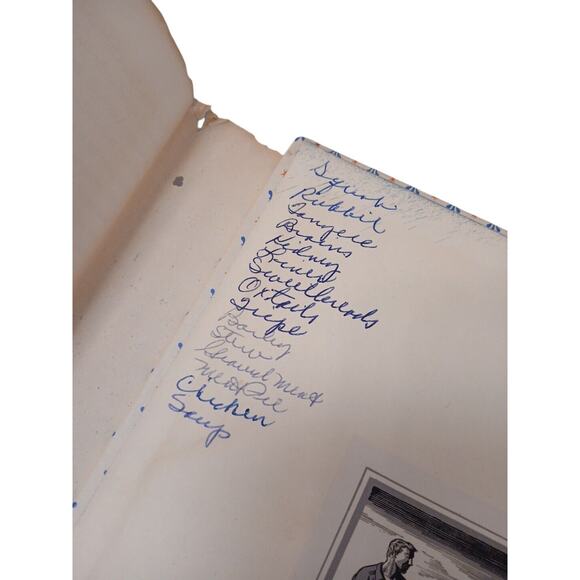 Squab
Rabbit
Tongue
Brains
Kidney
Liver
Sweetbreads
Oxtails
Tripe
Barley
Stew
Ground Meat
Meat Pie
Chicken
Soup